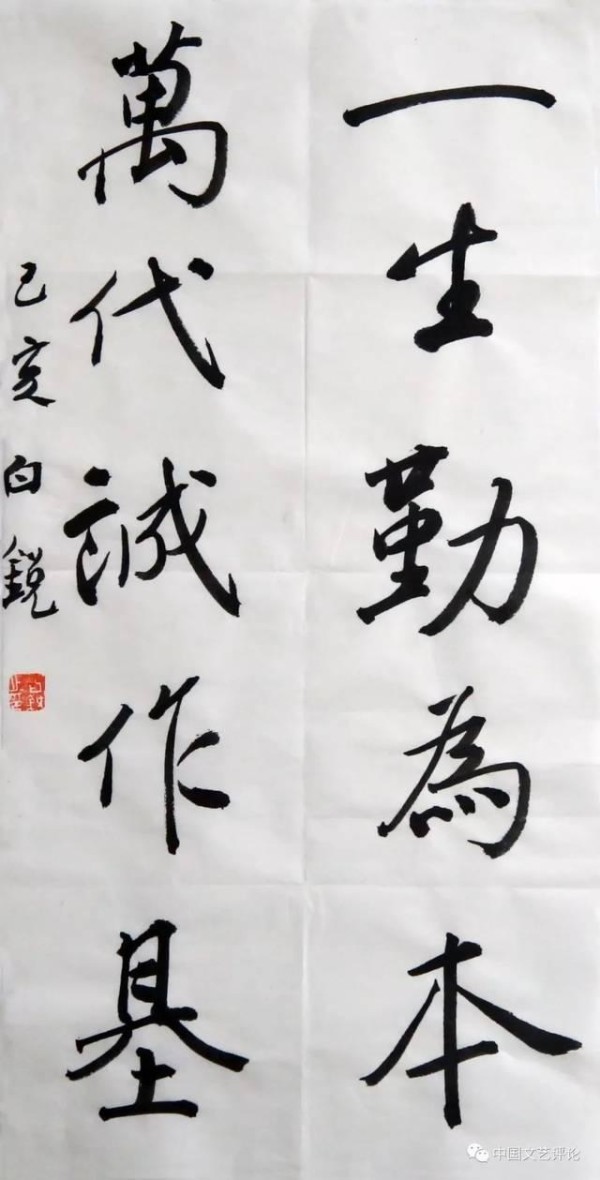 一生勤為本
萬代誠作基
己亥白鋭
中国文艺评论